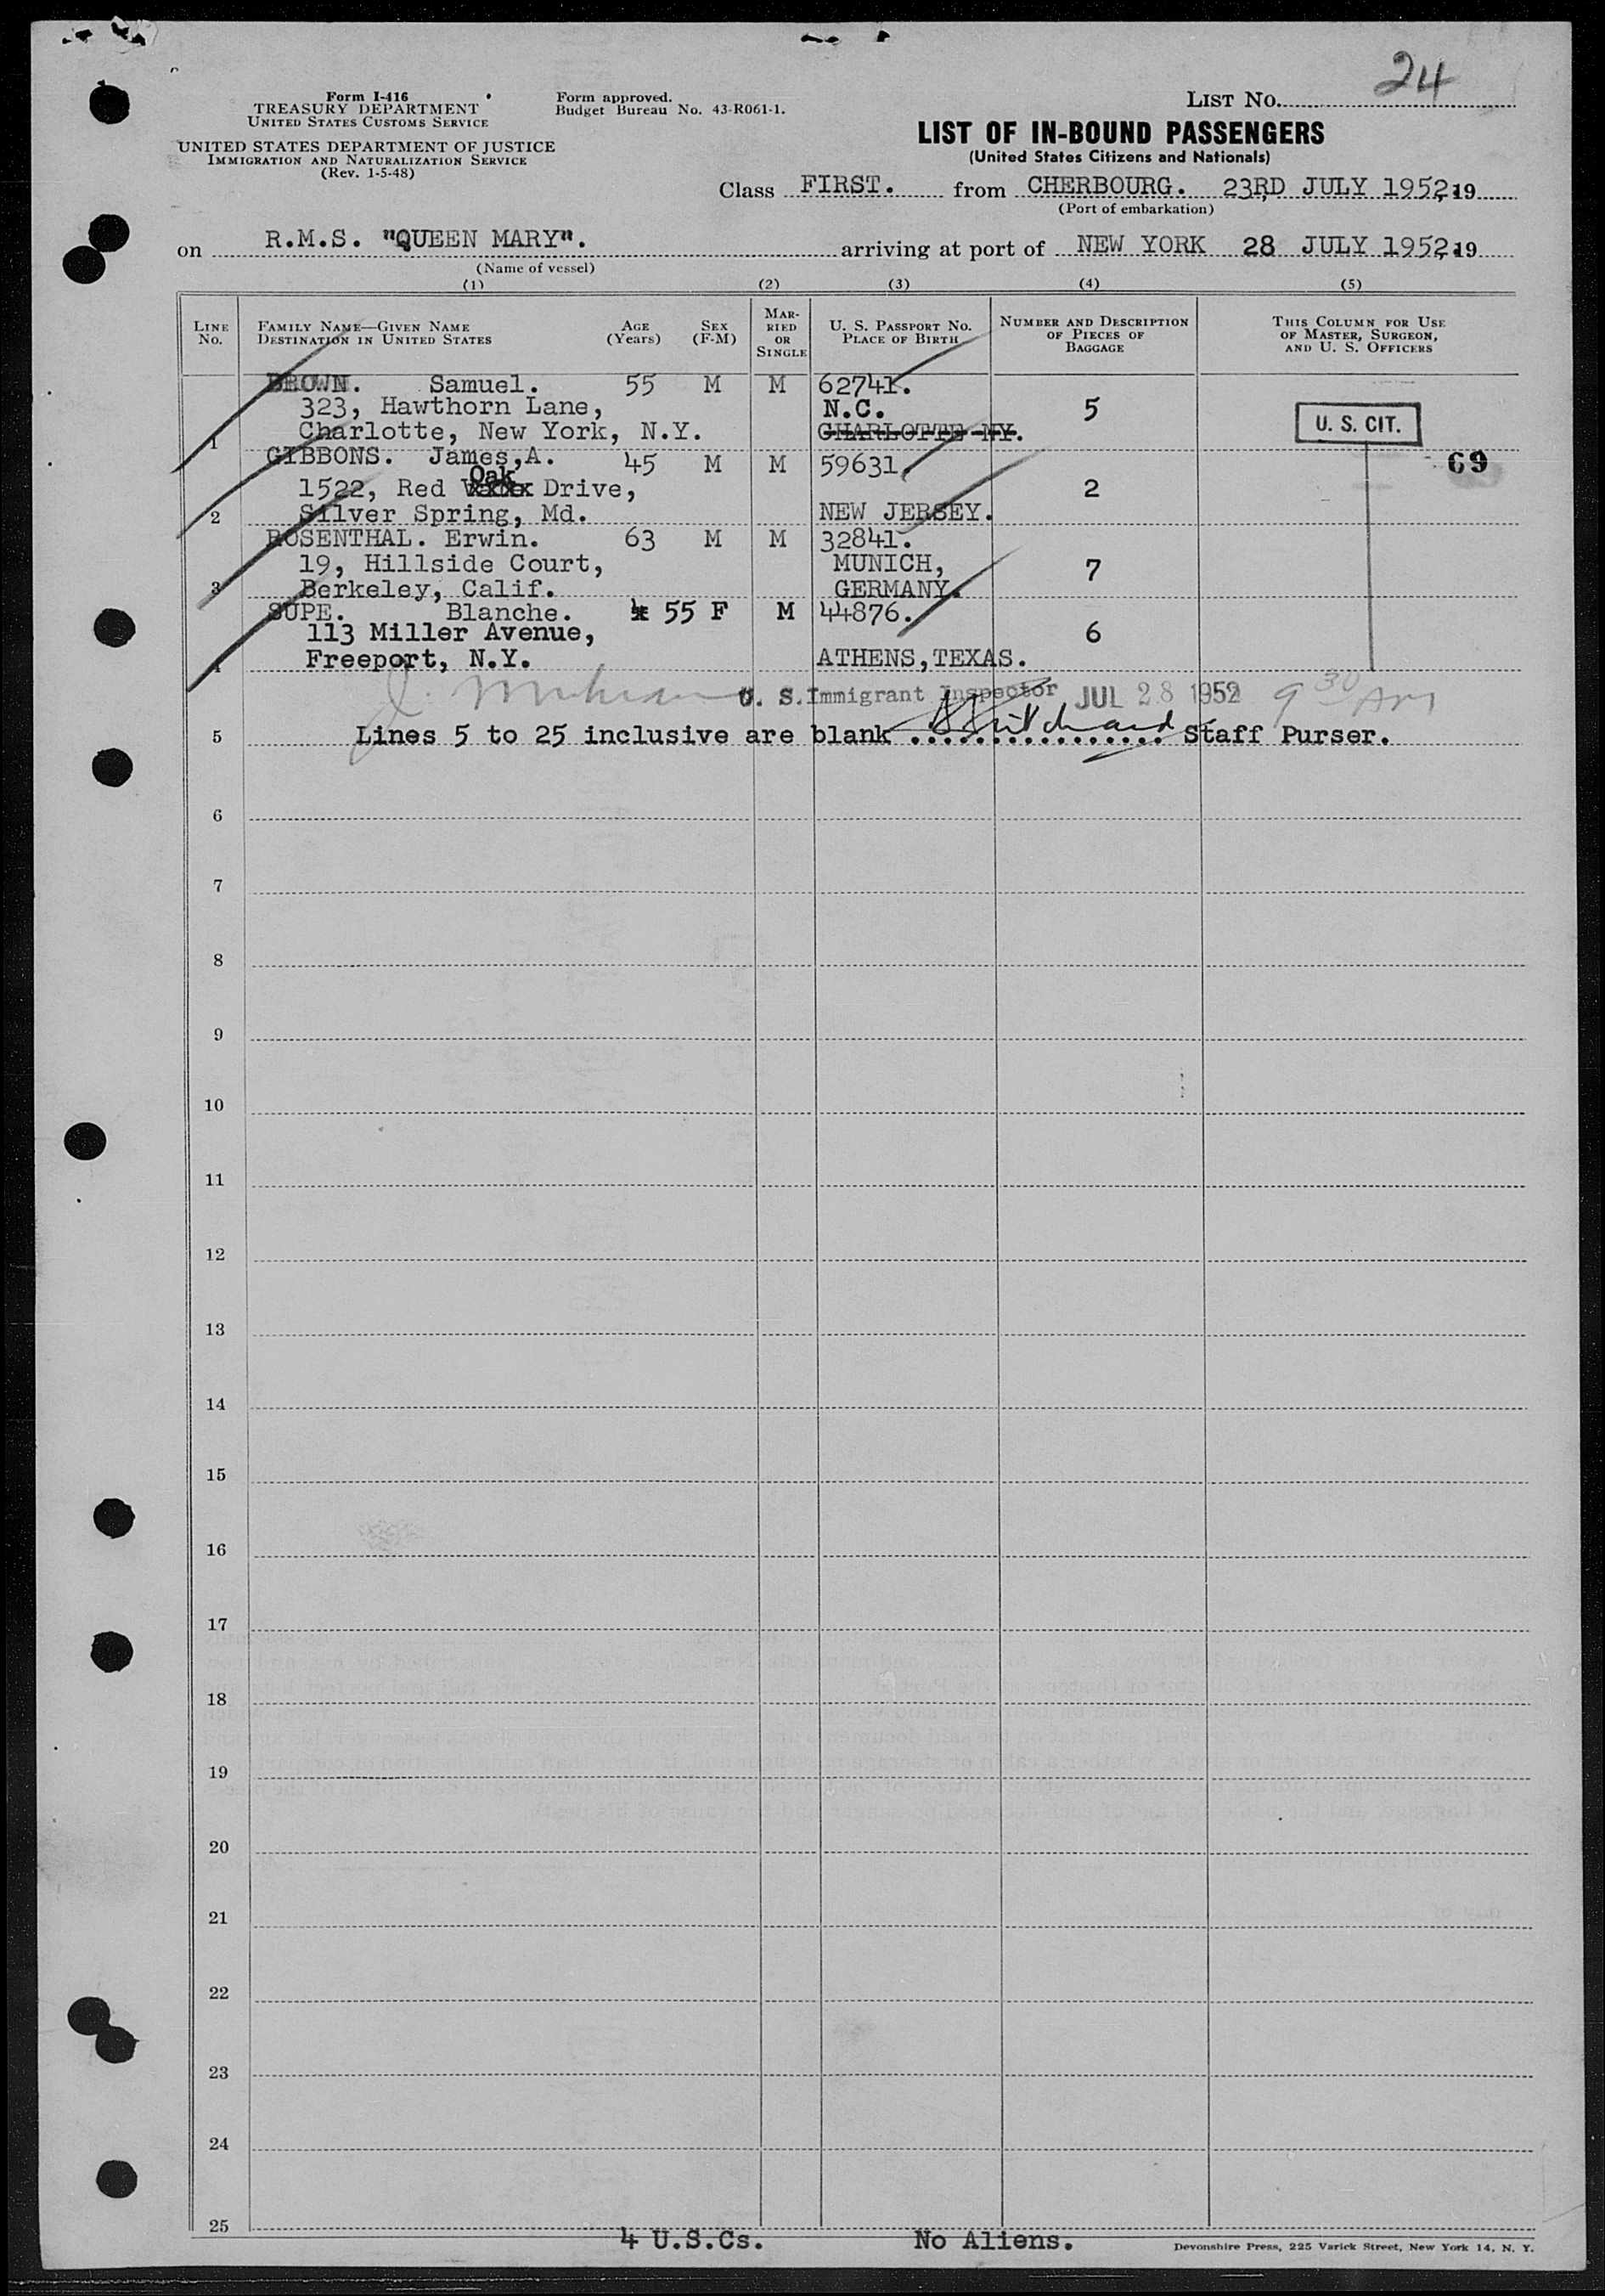 24
Form I-416
TREASURY DEPARTMENT
UNITED STATES CUSTOMS SERVICE
Form approved.
Budget Bureau No. 43-R061-1.
LIST NO.
UNITED STATES DEPARTMENT OF JUSTICE
IMMIGRATION AND NATURALIZATION SERVICE
(Rev. 1-5-48)
LIST OF IN-BOUND PASSENGERS
(United States Citizens and Nationals)
Class FIRST. from CHERBOURG. 23RD JULY 1952, 19
(Port of embarkation)
on R.M.S. "QUEEN MARY". arriving at port of NEW YORK 28 JULY 1952, 19
(Name of vessel)
(1) (2) (3) (4) (5)
LINE No. FAMILY NAME—GIVEN NAME DESTINATION IN UNITED STATES AGE (Years) SEX (F-M) MARRIED OR SINGLE U. S. PASSPORT NO. PLACE OF BIRTH NUMBER AND DESCRIPTION OF PIECES OF BAGGAGE THIS COLUMN FOR USE OF MASTER, SURGEON, AND U. S. OFFICERS
BROWN. Samuel. 55 M M 62741.
323, Hawthorn Lane, N.C. 5
1 Charlotte, New York, N.Y. CHARLOTTE NY. U. S. CIT.
GIBBONS. James,A. 45 M M 59631. 69
1522, Red Oak Drive, 2
2 Silver Spring, Md. NEW JERSEY.
ROSENTHAL. Erwin. 63 M M 32841.
19, Hillside Court, MUNICH, 7
3 Berkeley, Calif. GERMANY.
SUPE. Blanche. 55 F M 44876.
113 Miller Avenue, 6
4 Freeport, N.Y. ATHENS,TEXAS.
U. S. Immigrant Inspector JUL 28 1952 9 30 AM
5 Lines 5 to 25 inclusive are blank ................ Staff Purser.
6
7
8
9
10
11
12
13
14
15
16
17
18
19
20
21
22
23
24
25
4 U.S.Cs. No Aliens.
Devonshire Press, 225 Varick Street, New York 14, N. Y.